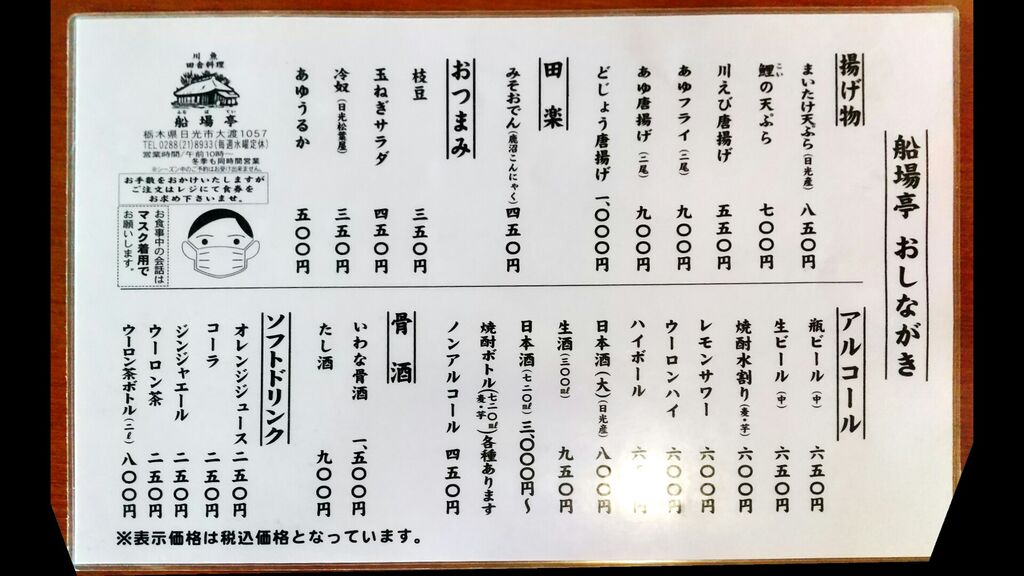 船場亭 おしながき
揚げ物
まいたけ天ぷら(日光産) 八五〇円
鯉の天ぷら 七〇〇円
こい
川えび唐揚げ 五五〇円
あゆフライ(二尾) 九〇〇円
あゆ唐揚げ(二尾) 九〇〇円
どじょう唐揚げ 一、〇〇〇円
田楽
みそおでん(鹿沼こんにゃく) 四五〇円
おつまみ
枝豆 三五〇円
玉ねぎサラダ 四五〇円
冷奴(日光松葉屋) 三五〇円
あゆうるか 五〇〇円
川魚
田舎料理
船場亭
ふなばてい
栃木県日光市大渡1057
TEL0288(21)8933(毎週水曜定休)
営業時間/午前10時〜
冬季も同時間営業
※シーズン中のご予約はお受け出来ません。
お手数をおかけいたしますが
ご注文はレジにて食券を
お求め下さいませ。
お食事中の会話は
マスク着用で
お願いします。
アルコール
瓶ビール(中) 六五〇円
生ビール(中) 六五〇円
焼酎水割り(麦・芋) 六〇〇円
レモンサワー 六〇〇円
ウーロンハイ 六〇〇円
ハイボール 六 円
日本酒(大)(日光産) 八〇〇円
生酒(三〇〇㎖) 九五〇円
日本酒(七二〇㎖) 三、〇〇〇円〜
焼酎ボトル(七二〇㎖ 麦・芋)各種あります
ノンアルコール 四五〇円
骨酒
いわな骨酒 一、五〇〇円
たし酒 九〇〇円
ソフトドリンク
オレンジジュース 二五〇円
コーラ 二五〇円
ジンジャエール 二五〇円
ウーロン茶 二五〇円
ウーロン茶ボトル(二ℓ) 八〇〇円
※表示価格は税込価格となっています。